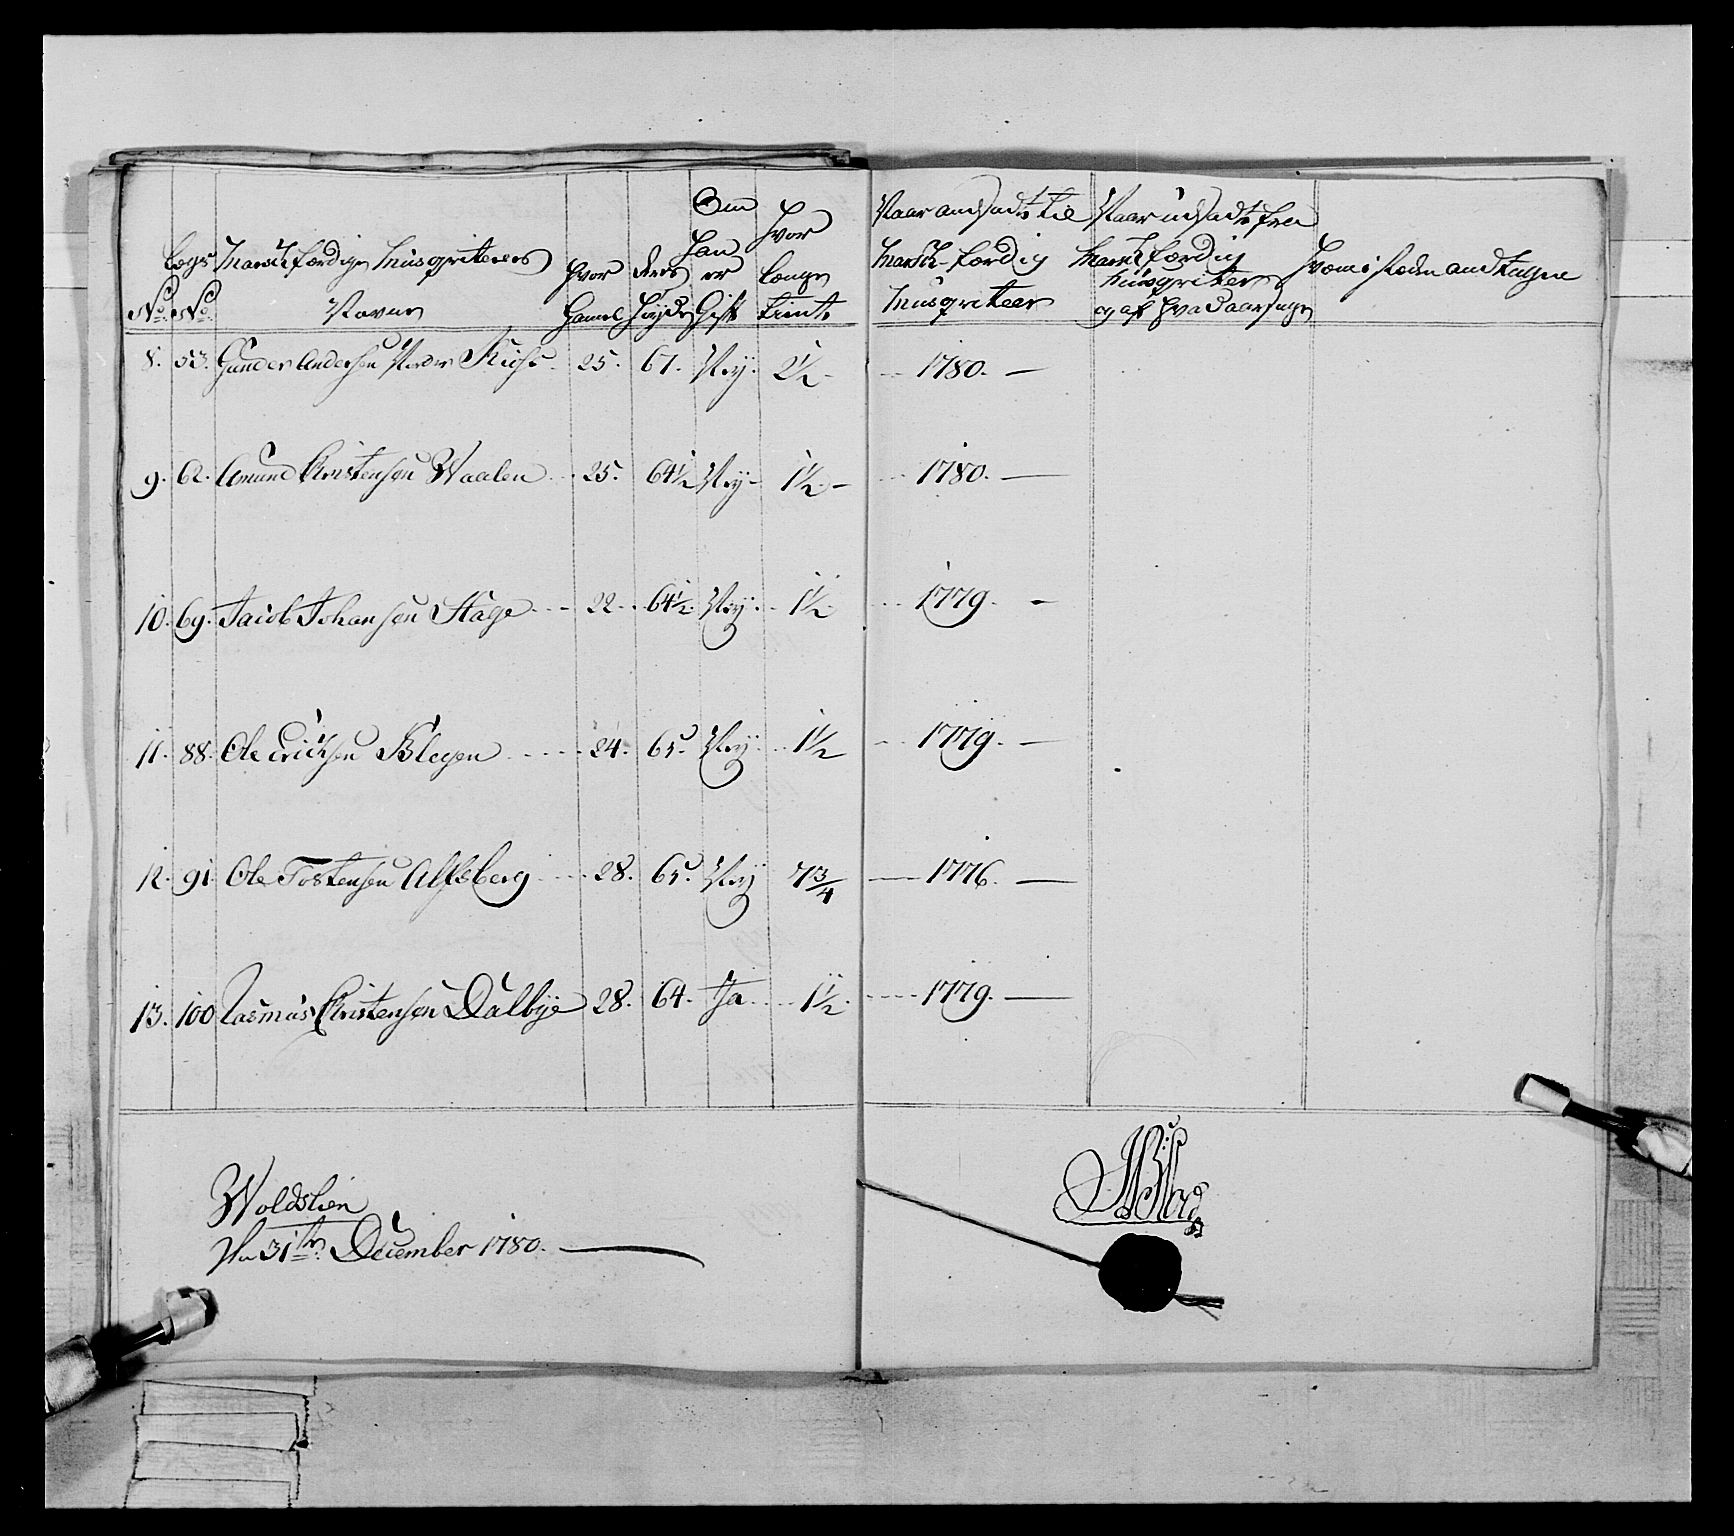 No. Lægs No. Marsch færdige Musqviterers Navne Hvor Gamel Deres Høyde Om Han er Gift Hvor Længe tient Naar andsadt til Marsch-færdig Musqviteer Naar udsadt fra Marsch færdig Musqviteer og af Hvad aarsage Hvem i stæden andtagen
8. 53. Gunder Andersen Nordre 25. 67. Ney. 2½ 1780.
9. 62. Amund Christensen Waalen 25. 64½ Ney 1½ 1780.
10. 69. Jacob Johansen Hage 22. 64½. Ney. 1½. 1779.
11. 88. Ole Erichsen Blegen 24. 65. Ney. 1½ 1779.
12. 91. Ole Tostensen Alfsberg 28. 65. Ney 7¾ 1776.
13. 100 Rasmus Christensen Dalbye 28. 64. Ja 1½. 1779.
Woldslien
31te December 1780.